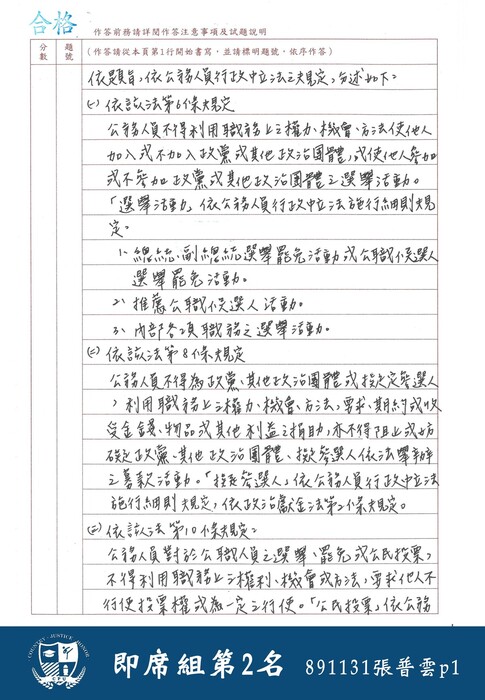 合格
作答前務請詳閱作答注意事項及試題說明
分數
題號
(作答請從本頁第1行開始書寫,並請標明題號,依序作答)
依題旨,依公務人員行政中立法之規定,分述如下:
(一) 依該法第6條規定
公務人員不得利用職務上之權力、機會、方法使他人
加入或不加入政黨或其他政治團體,或使他人參加
或不參加政黨或其他政治團體之選舉活動。
「選舉活動」,依公務人員行政中立法施行細則規
定。
1、總統、副總統選舉罷免活動或公職候選人
選舉罷免活動。
2、推薦公職候選人活動。
3、內部各項職務之選舉活動。
(二) 依該法第8條規定
公務人員不得為政黨、其他政治團體或擬定參選人
,利用職務上之權力、機會、方法,要求、期約或收
受金錢、物品或其他利益之捐助,亦不得阻止或妨
礙政黨、其他政治團體、擬參選人依法舉辦
之募款活動。「擬參選人」依公務人員行政中立法
施行細則規定,依政治獻金法第2條規定。
(三) 依該法第10條規定:
公務人員對於公職人員之選舉、罷免或公民投票,
不得利用職務上之權利、機會或方法,要求他人不
行使投票權或為一定之行使。「公民投票」依公務
COUNTY JUSTICE HONOR
即席組第2名 891131張普雲p1